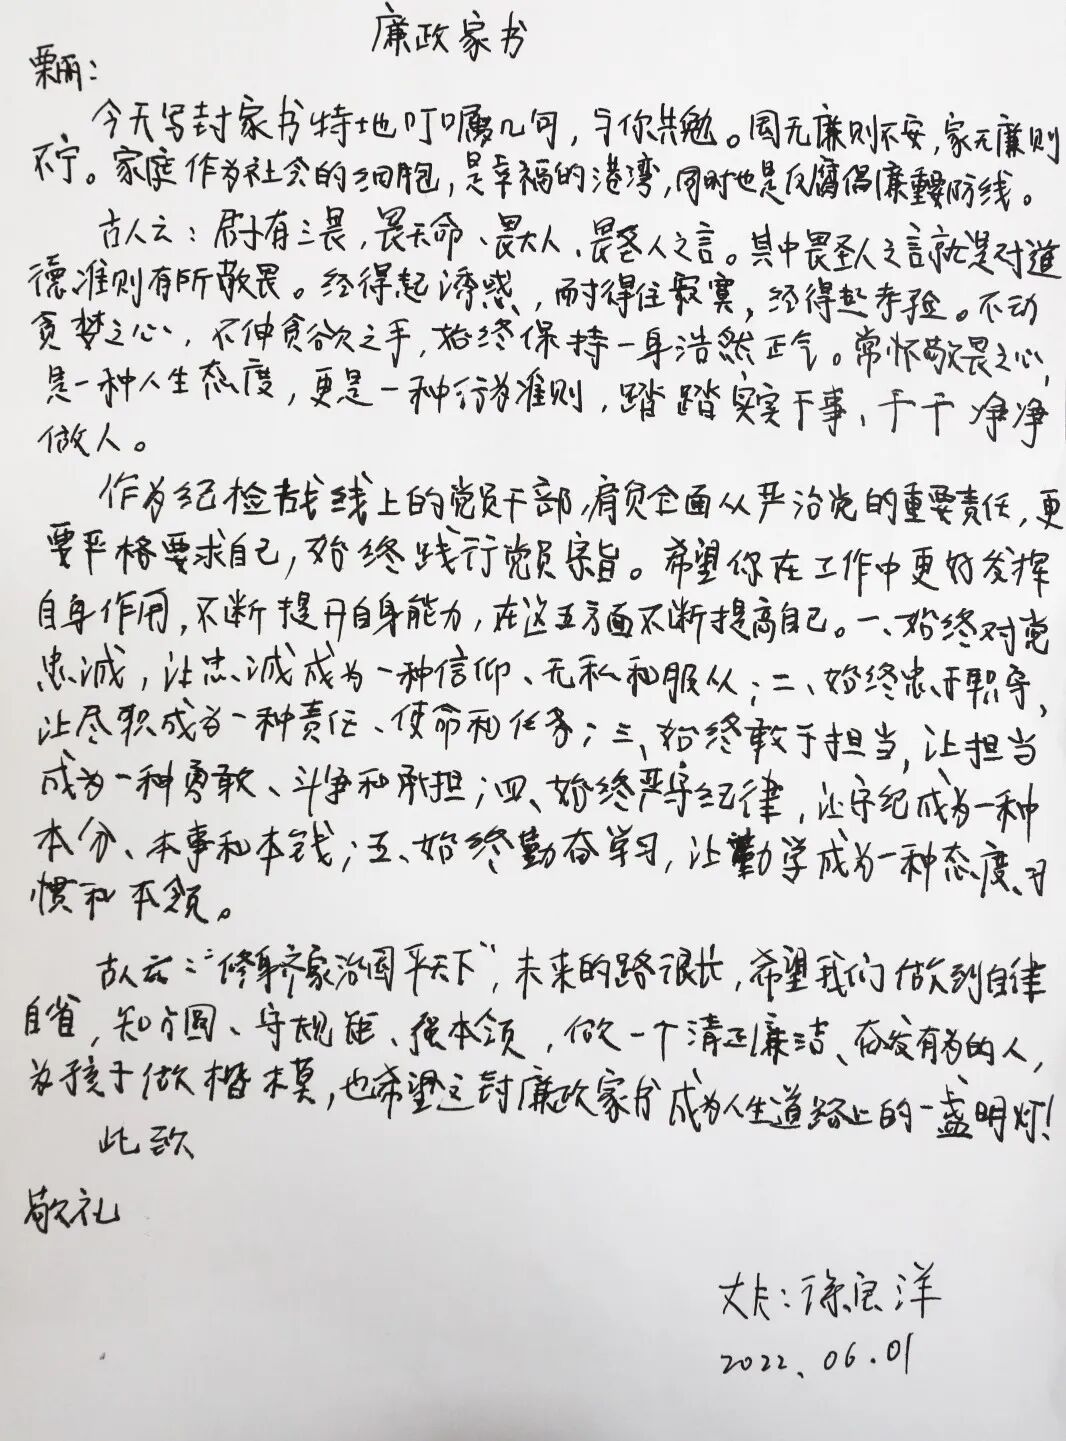 廉政家书
栗丽：
今天写封家书特地叮嘱几句，与你共勉。国无廉则不安，家无廉则
不宁。家庭作为社会的细胞，是幸福的港湾，同时也是反腐倡廉重要防线。
古人云：君子有三畏，畏天命、畏大人、畏圣人之言。其中畏圣人之言就是对道
德准则有所敬畏。经得起诱惑，耐得住寂寞，经得起考验。不动
贪梦之心，不伸贪欲之手，始终保持一身浩然正气。常怀敬畏之心，
是一种人生态度，更是一种行为准则，踏踏实实干事、干干净净
做人。
作为纪检战线上的党员干部，肩负全面从严治党的重要责任，更
要严格要求自己，始终践行党员宗旨。希望你在工作中更好发挥
自身作用，不断提升自身能力，在这五方面不断提高自己。一、始终对党
忠诚，让忠诚成为一种信仰、无私和服从；二、始终忠于职守，
让尽职成为一种责任、使命和任务；三、始终敢于担当，让担当
成为一种勇敢、斗争和承担；四、始终严守纪律，让守纪成为一种
本分、本事和本钱；五、始终勤奋学习，让勤学成为一种态度、习
惯和本领。
古人云：“修身齐家治国平天下”，未来的路很长，希望我们做到自律
自省，知方圆、守规矩、强本领，做一个清正廉洁、奋发有为的人，
为孩子做楷模，也希望这封廉政家书成为人生道路上的一盏明灯！
此致
敬礼
丈夫：徐良洋
2022.06.01